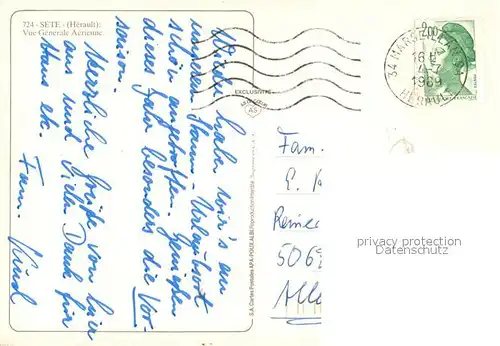 724 - SETE - (Hérault)
Vue Générale Aérienne
Wieder haben wir's an
unserem Stamm-Urlaubsort
schön angetroffen. Genießen
dieses Jahr besonders die Vor-
saison.
Herzliche Grüße von hier
aus und vielen Dank für
Haus etc.
Fam.
EXCLUSIVITÉ
S.A. Cartes Postales APA-POUX ALBI
2,00
34 MARSEILLAN
16 H
1989
HERAULT
Fam.
E.
506
privacy protection
Datenschutz